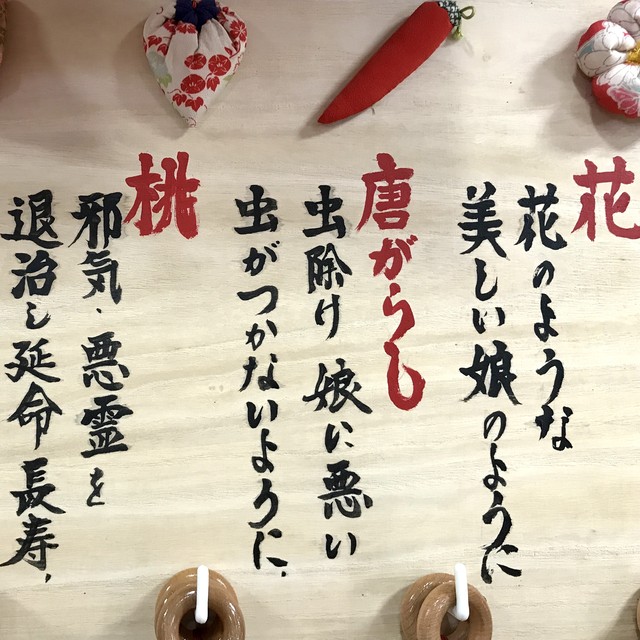 花
花のような
美しい娘のように
唐がらし
虫除け 娘に悪い
虫がつかないように、
桃
邪気、悪霊を
退治し延命長寿、